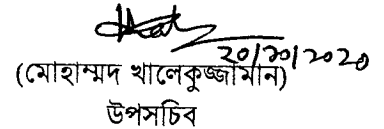 ২০/১০/২০২০
(মোহাম্মদ খালেকুজ্জামান)
উপসচিব